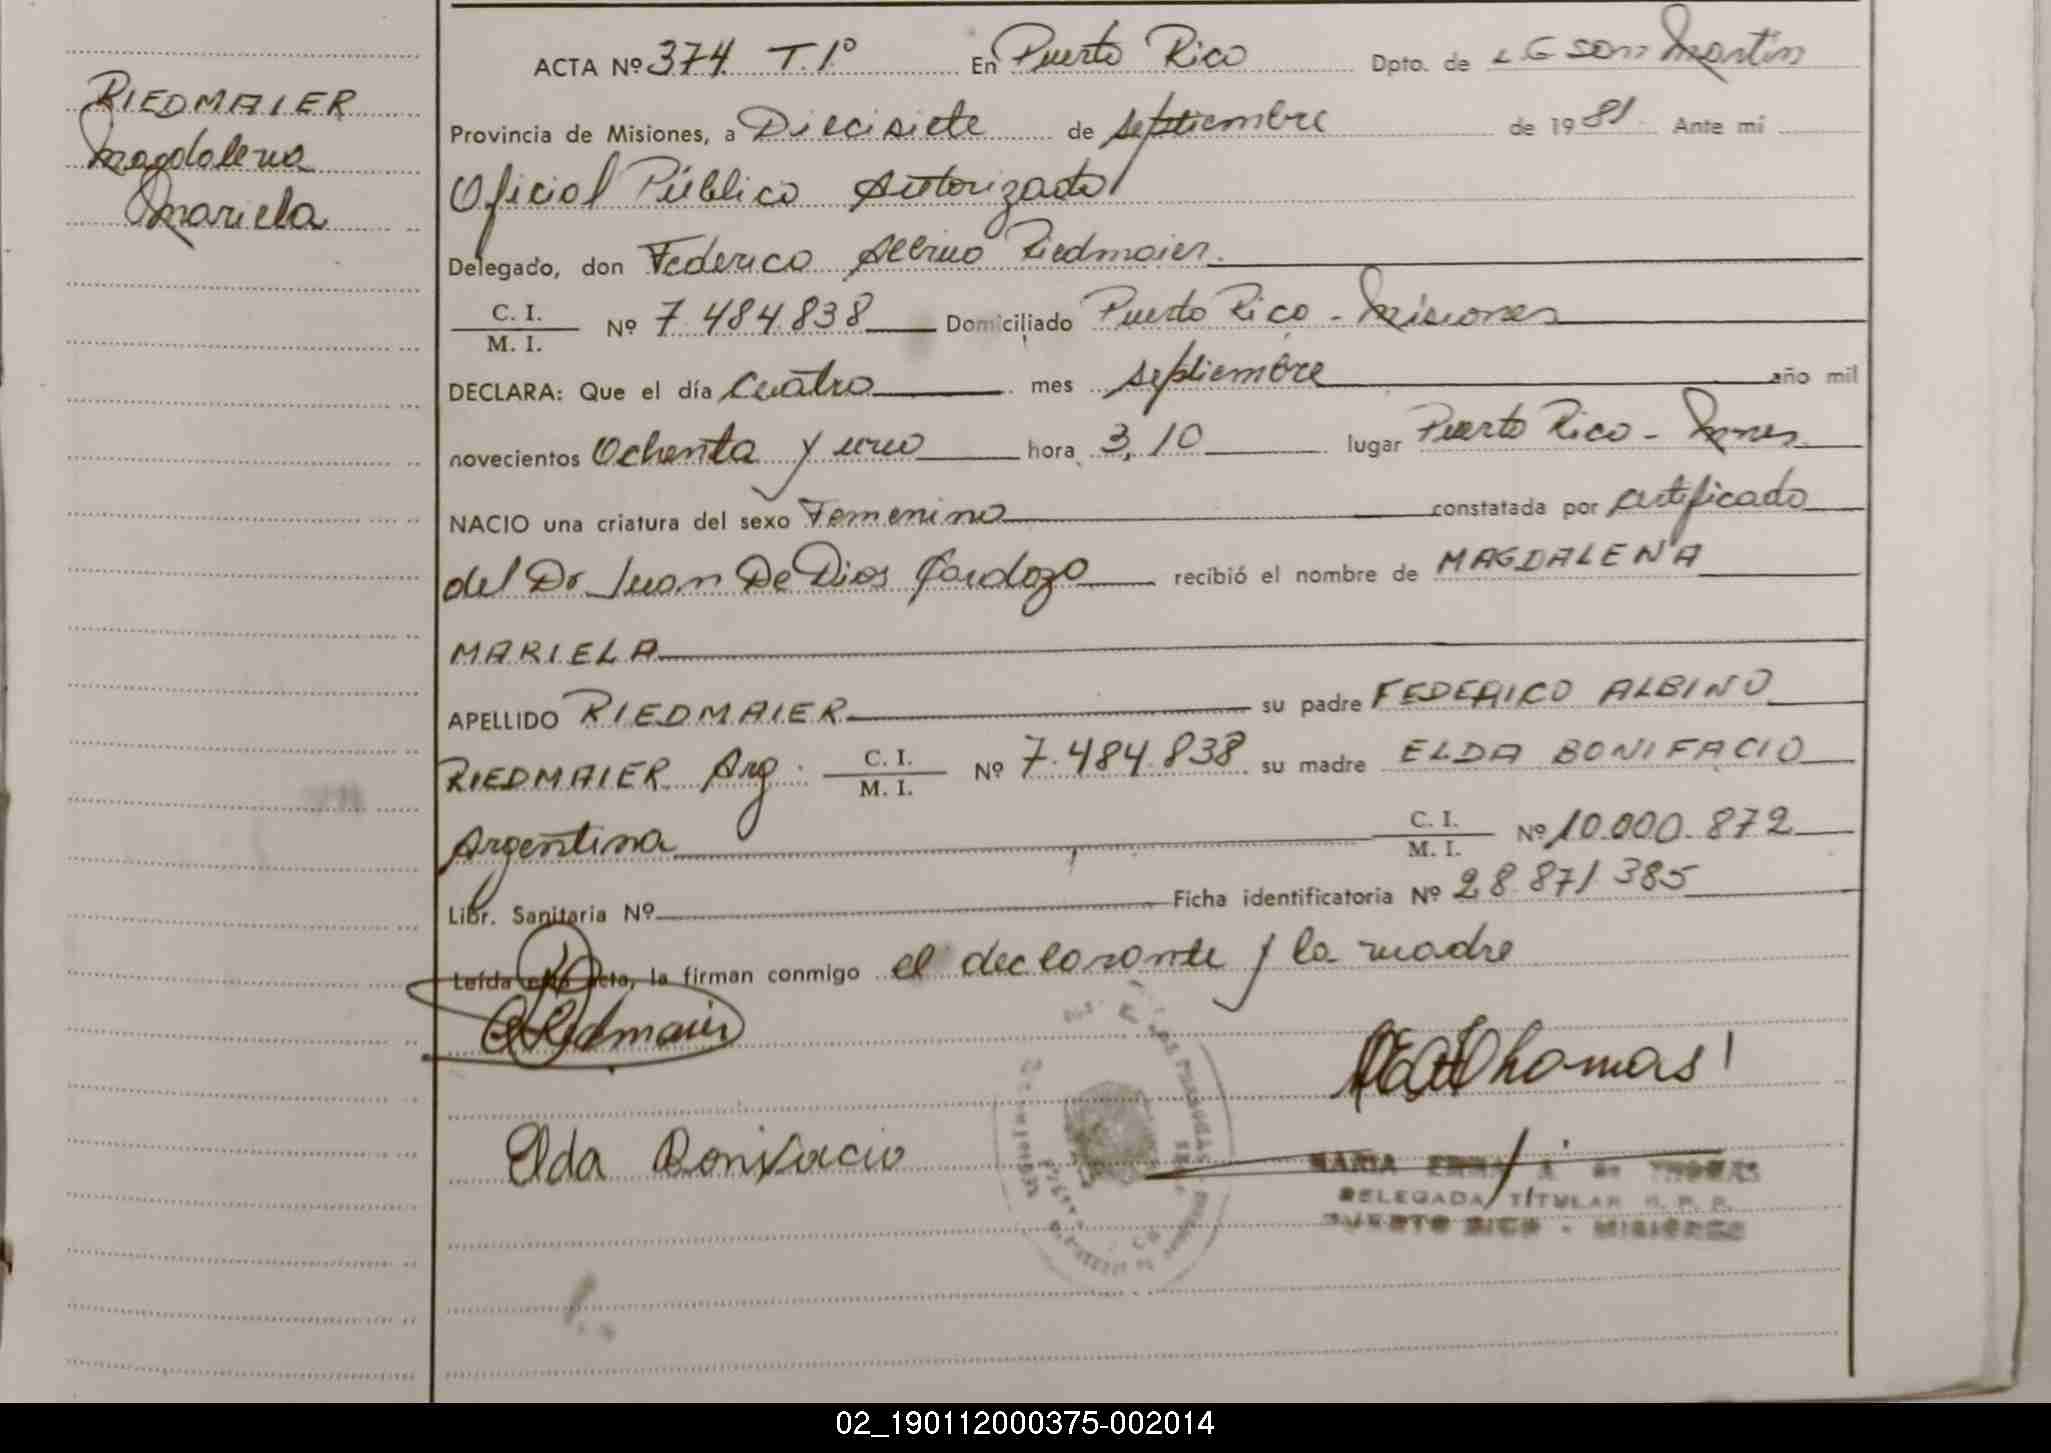 RIEDMAIER
Magdalena
Mariela
ACTA Nº 374 T. 1º En Puerto Rico Dpto. de LG San Martín
Provincia de Misiones, a Diecisiete de septiembre de 1981. Ante mi
Oficial Público Autorizado
Delegado, don Federico Albino Riedmaier.
C. I.
M. I. Nº 7.484.838 Domiciliado Puerto Rico - Misiones
DECLARA: Que el día Cuatro mes septiembre año mil
novecientos Ochenta y uno hora 3,10 lugar Puerto Rico - Mnes
NACIO una criatura del sexo Femenino constatada por certificado
del Dr Juan De Dios Cardozo recibió el nombre de MAGDALENA
MARIELA
APELLIDO RIEDMAIER su padre FEDERICO ALBINO
RIEDMAIER Arg. C. I.
M. I. Nº 7.484.838 su madre ELDA BONIFACIO
Argentina C. I.
M. I. Nº 10.000.872
Libr. Sanitaria Nº Ficha identificatoria Nº 28.871.385
Leída esta acta, la firman conmigo el declarante y la madre
Riedmaier
Thomas
Elda Bonifacio
MARIA de THOMAS
DELEGADA TITULAR R. P. P.
PUERTO RICO - MISIONES
02_190112000375-002014